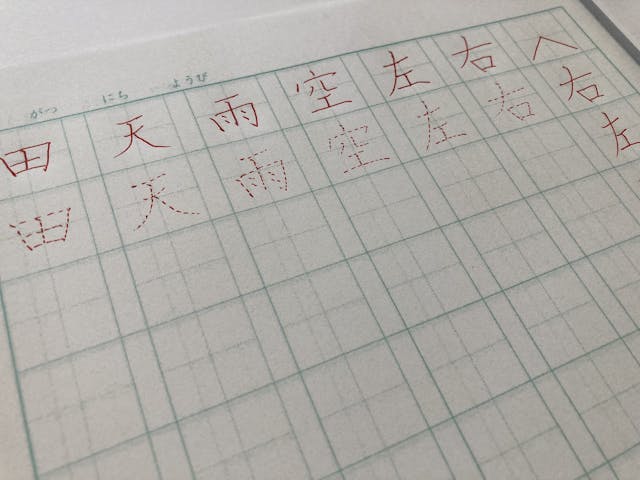 がつ にち ようび
へ右左
右右
左左
空空
雨雨
天天
田田